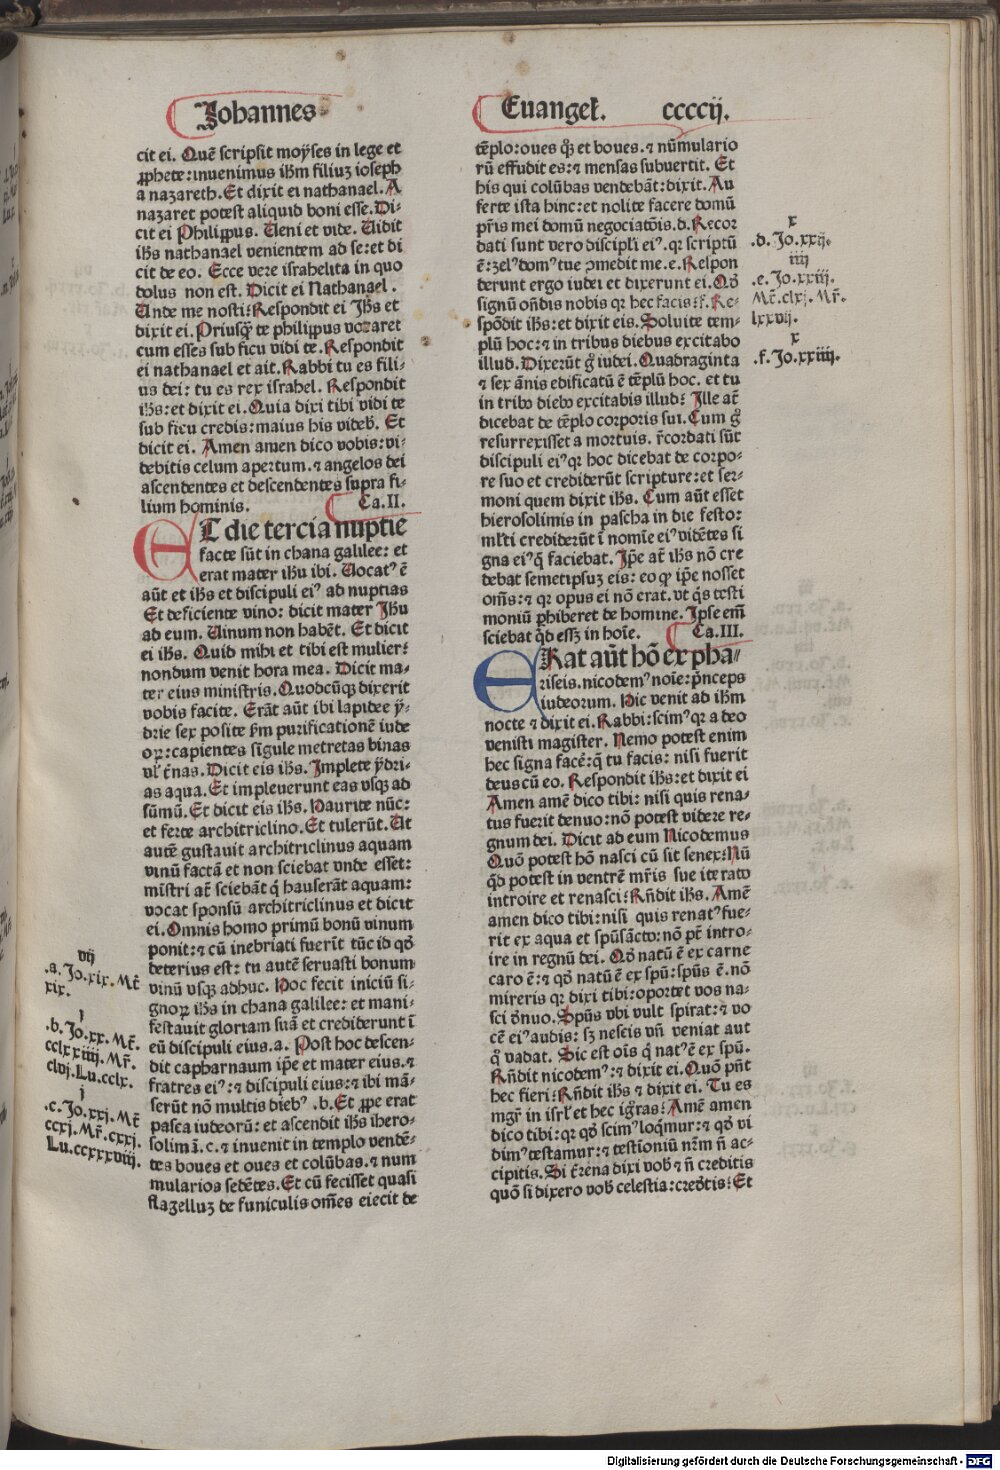 Johannes
Euangel. ccccij.
cit ei. Quē scripsit moyses in lege et
ꝓphete: inuenimus ihm̄ filiuʒ ioseph
a nazareth. Et dixit ei nathanael. A
nazaret potest aliquid boni esse. Di-
cit ei Philippus. Ueni et vide. Uidit
ihs̄ nathanael venientem ad se: et di
cit de eo. Ecce vere israhelita in quo
dolus non est. Dicit ei Nathanael.
Unde me nosti: Respondit ei Jhs̄ et
dixit ei. Priusq̄ te philippus vocaret
cum esses sub ficu vidi te. Respondit
ei nathanael et ait. Rabbi tu es fili-
us dei: tu es rex israhel. Respondit
ihs̄: et dixit ei. Quia dixi tibi vidi te
sub ficu credis: maius his videb̄. Et
dicit ei. Amen amen dico vobis: vi-
debitis celum apertum. ⁊ angelos dei
ascendentes et descendentes supra fi-
lium hominis. Ca. II.
ET die tercia nuptie
facte sūt in chana galilee: et
erat mater ihū ibi. Uocatꝰ ē
aūt et ihs̄ et discipuli eiꝰ ad nuptias
Et deficiente vino: dicit mater Jhū
ad eum. Uinum non habēt. Et dicit
ei ihs̄. Quid mihi et tibi est mulier:
nondum venit hora mea. Dicit ma-
ter eius ministris. Quodcūqꝫ dixerit
vobis facite. Erāt aūt ibi lapidee ẏ-
drie sex posite s̄m purificationē iude
oꝝ: capientes sigule metretas binas
vl̄ t̄nas. Dicit eis ihs̄. Implete ẏdri-
as aqua. Et impleuerunt eas vsqꝫ ad
sūmū. Et dicit eis ihs̄. Haurite nūc:
et ferte architriclino. Et tulerūt. Ut
autē gustauit architriclinus aquam
vinū factā et non sciebat vnde esset:
mīstri at̄ sciebāt q̄ hauserāt aquam:
vocat sponsū architriclinus et dicit
ei. Omnis homo primū bonū vinum
ponit: ⁊ cū inebriati fuerīt tūc id qd̄
deterius est: tu autē seruasti bonum
vinū vsqꝫ adhuc. Hoc fecit iniciū si-
gnoꝝ ihs̄ in chana galilee: et mani-
festauit gloriam suā et crediderunt ī
eū discipuli eius. a. Post hoc descen-
dit capharnaum ip̄e et mater eius. ⁊
fratres eiꝰ: ⁊ discipuli eius: ⁊ ibi mā-
serūt nō multis diebꝰ. b. Et ꝓpe erat
pasca iudeorū: et ascendit ihs̄ ihero-
solimā. c. ⁊ inuenit in templo vendē-
tes boues et oues et colūbas. ⁊ num
mularios sedētes. Et cū fecisset quasi
flagelluʒ de funiculis om̄es eiecit de
vij
.a. Jo. xix. Mt̄
xix.
j
.b. Jo. xx. Mt̄.
cclxxiiij. Mr̄.
clvj. Lu. cclx.
j
.c. Jo. xxj. Mt̄
ccxj. Mr̄. cxxj.
Lu. ccxxxviij.
tēplo: oues qꝫ et boues. ⁊ nūmulario
rū effudit es: ⁊ mensas subuertit. Et
his qui colūbas vendebāt: dixit. Au
ferte ista hinc: et nolite facere domū
pr̄is mei domū negociatōis. d. Recor
dati sunt vero discipl̄i eiꝰ. qr scriptū
ē: zelꝰ domꝰ tue ꝯmedit me. e. Respon
derunt ergo iudei et dixerunt ei. Qd̄
signū on̄dis nobis qr hec facis: f. Re-
spōdit ihs̄: et dixit eis. Soluite tem-
plū hoc: ⁊ in tribus diebus excitabo
illud. Dixerūt g̊ iudei. Quadraginta
⁊ sex ānis edificatū ē tēplū hoc. et tu
in tribꝰ diebꝰ excitabis illud: Ille at̄
dicebat de tēplo corporis sui. Cum g̊
resurrexisset a mortuis. r̄cordati sūt
discipuli eiꝰ qr hoc dicebat de corpo-
re suo et crediderūt scripture: et ser-
moni quem dixit ihs̄. Cum aūt esset
hierosolimis in pascha in die festo:
ml̄ti crediderūt ī nomīe eiꝰ vidētes si
gna eiꝰ q̄ faciebat. Ip̄e at̄ ihs̄ nō cre
debat semetipsuʒ eis: eo ꝙ ip̄e nosset
om̄s: ⁊ qr opus ei nō erat. vt q̄s testi
moniū ꝑhiberet de homine. Ipse em̄
sciebat qd̄ essʒ in hoīe. Ca. III.
ERat aūt hō ex pha-
riseis. nicodemꝰ noīe: pn̄ceps
iudeorum. Hic venit ad ihm̄
nocte ⁊ dixit ei. Rabbi: scimꝰ qr a deo
venisti magister. Nemo potest enim
hec signa facē: q̄ tu facis: nisi fuerit
deus cū eo. Respondit ihs̄: et dixit ei
Amen amē dico tibi: nisi quis rena-
tus fuerit denuo: nō potest videre re-
gnum dei. Dicit ad eum Nicodemus
Quō potest hō nasci cū sit senex: Nū
qd̄ potest in ventrē mr̄is sue iterato
introire et renasci: Rn̄dit ihs̄. Amē
amen dico tibi: nisi quis renatꝰ fue-
rit ex aqua et spūsācto: nō pt̄ intro-
ire in regnū dei. Qd̄ natū ē ex carne
caro ē: ⁊ qd̄ natū ē ex spū: spūs ē. nō
mireris qr dixi tibi: oportet vos na-
sci d̄nuo. Spūs vbi vult spirat: ⁊ vo
cē eiꝰ audis: sʒ nescis vn̄ veniat aut
q̊ vadat. Sic est oīs q̄ natꝰ ē ex spū.
Rn̄dit nicodemꝰ: ⁊ dixit ei. Quō pn̄t
hec fieri: Rn̄dit ihs̄ ⁊ dixit ei. Tu es
mgr̄ in isrl̄ et hec ig̊ras: Amē amen
dico tibi: qr qd̄ scimꝰ loq̄mur: ⁊ qd̄ vi
dimꝰ testamur: ⁊ testioniū nr̄m n̄ ac-
cipitis. Si t̄rena dixi vob̄ ⁊ n̄ creditis
quō si dixero vob̄ celestia: cred̄tis: Et
x
.d. Jo. xxij.
iiij
.e. Jo. xxiij.
Mt̄. clxj. Mr̄.
lxxvij.
x
.f. Jo. xxiiij.
Digitalisierung gefördert durch die Deutsche Forschungsgemeinschaft - DFG